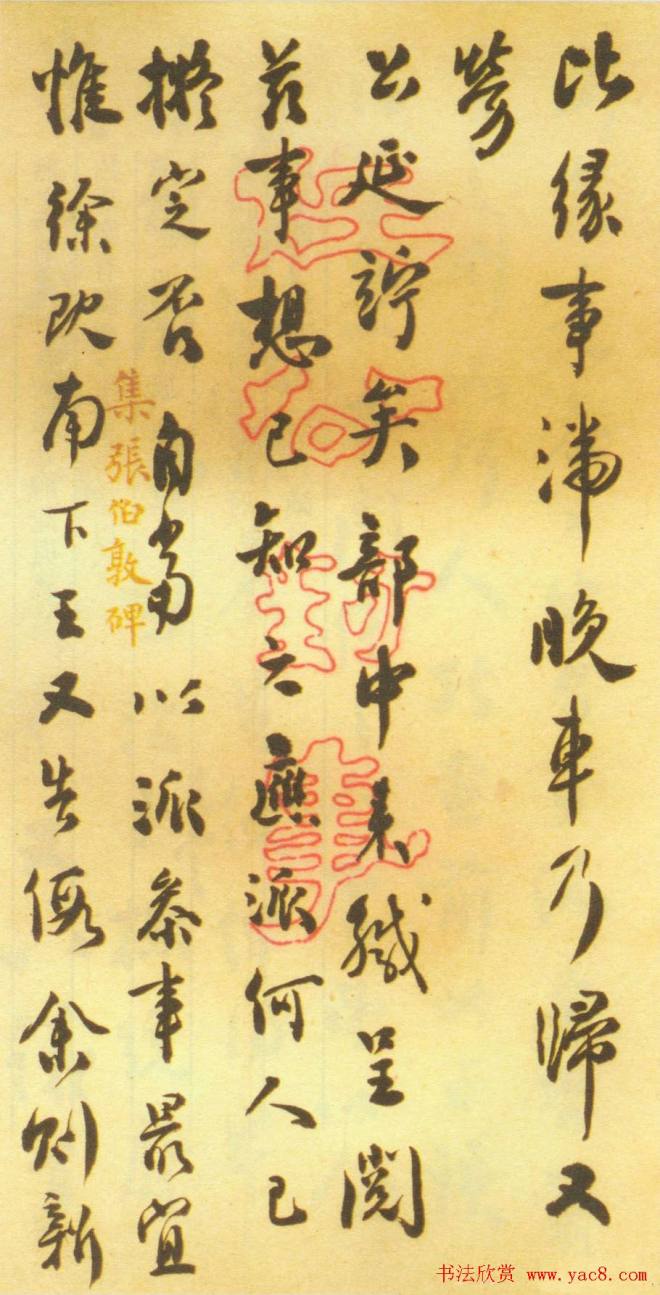 比緣事滯晚車乃歸又
勞
公延竚矣部中來緘呈閱
茲事想已知之應派何人已
擬定否自當以派參事最宜
惟徐欧南下王又告假余則新
集張伯敦碑
书法欣赏 www.yac8.com